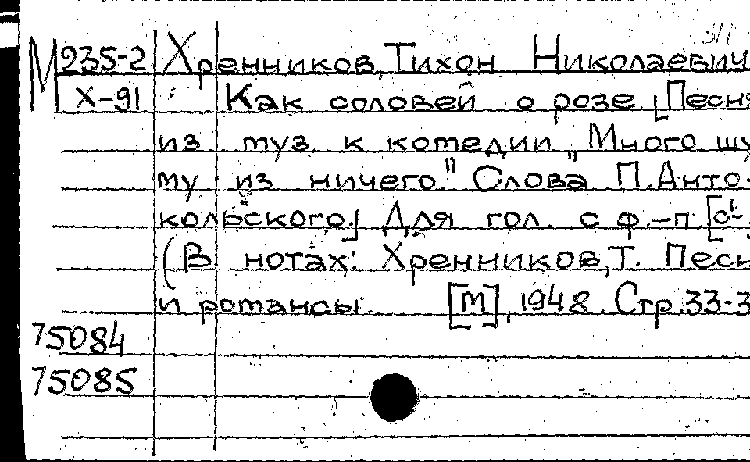 М235-2 Хренников, Тихон Николаевич
Х-91 Как соловей о розе. [Песня
из муз. к комедии „Много шу-
му из ничего." Слова П. Анто-
кольского] Для гол. с ф.-п.
(В нотах: Хренников, Т. Песн
и романсы. [М], 1948. Стр. 33-3
75084
75085